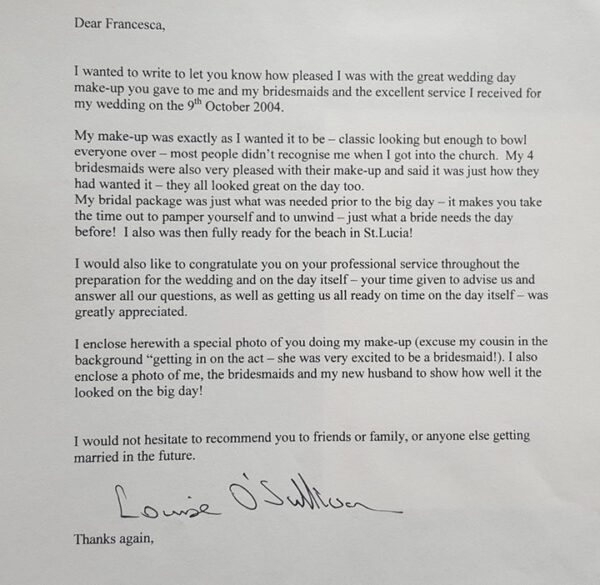 Dear Francesca,
I wanted to write to let you know how pleased I was with the great wedding day
make-up you gave to me and my bridesmaids and the excellent service I received for
my wedding on the 9th October 2004.
My make-up was exactly as I wanted it to be – classic looking but enough to bowl
everyone over – most people didn't recognise me when I got into the church. My 4
bridesmaids were also very pleased with their make-up and said it was just how they
had wanted it – they all looked great on the day too.
My bridal package was just what was needed prior to the big day – it makes you take
the time out to pamper yourself and to unwind – just what a bride needs the day
before! I also was then fully ready for the beach in St.Lucia!
I would also like to congratulate you on your professional service throughout the
preparation for the wedding and on the day itself – your time given to advise us and
answer all our questions, as well as getting us all ready on time on the day itself – was
greatly appreciated.
I enclose herewith a special photo of you doing my make-up (excuse my cousin in the
background "getting in on the act – she was very excited to be a bridesmaid!). I also
enclose a photo of me, the bridesmaids and my new husband to show how well it the
looked on the big day!
I would not hesitate to recommend you to friends or family, or anyone else getting
married in the future.
Louise O'Sullivan
Thanks again,